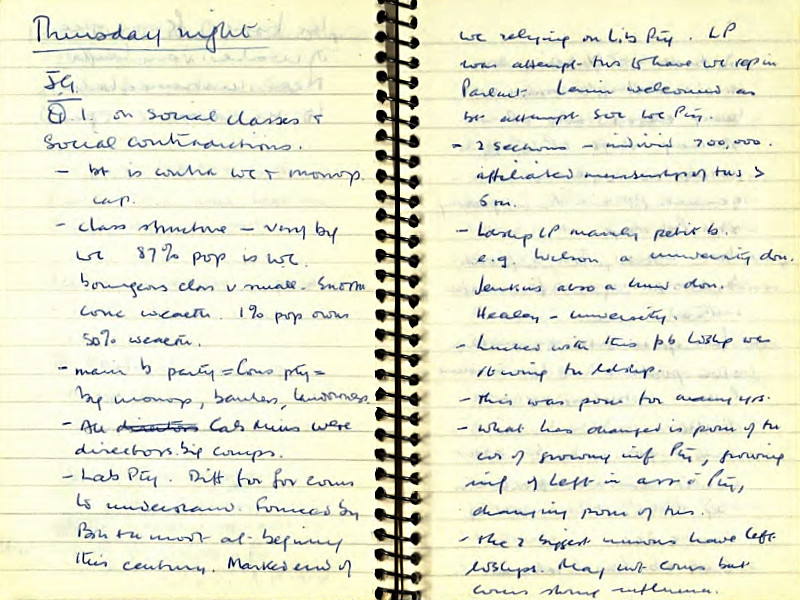 Thursday night
JG.
Q 1. on social classes +
social contradictions.
- bt is contra wc + monop.
cap.
- class structure - very big
wc 87% pop is wc.
bourgeois class v small. Enorm
conc wealth. 1% pop owns
50% wealth.
- main b party = Cons pty =
big monop, bankers, landowners.
- All directors Cab Mins were
directors big comps.
- Lab Pty. Diff for for coms
to understand. Formed by
Brit tu movt at beginning
this century. Marked end of
wc relying on Lib Pty. LP
was attempt tus to have wc rep in
Parlant. Lenin welcomed as
1st attempt soc wc Pty.
- 2 sections - individ 700,000.
affiliated membership of tus >
5m.
- Ldship LP mainly petit b.
e.g. Wilson a university don.
Jenkins also a univ don.
Healey - university.
- Linked with this pb ldship we
rt wing tu ldship.
- this was posn for many yrs.
- what has changed is posn of tu
cos of growing inf Pty, growing
inf of left in ass c Pty,
changing posn of tus.
- the 2 biggest unions have left
ldships. May not coms but
coms strong influence.